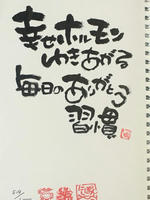 幸せホルモン
わきあがる
毎日のありがとう
習慣